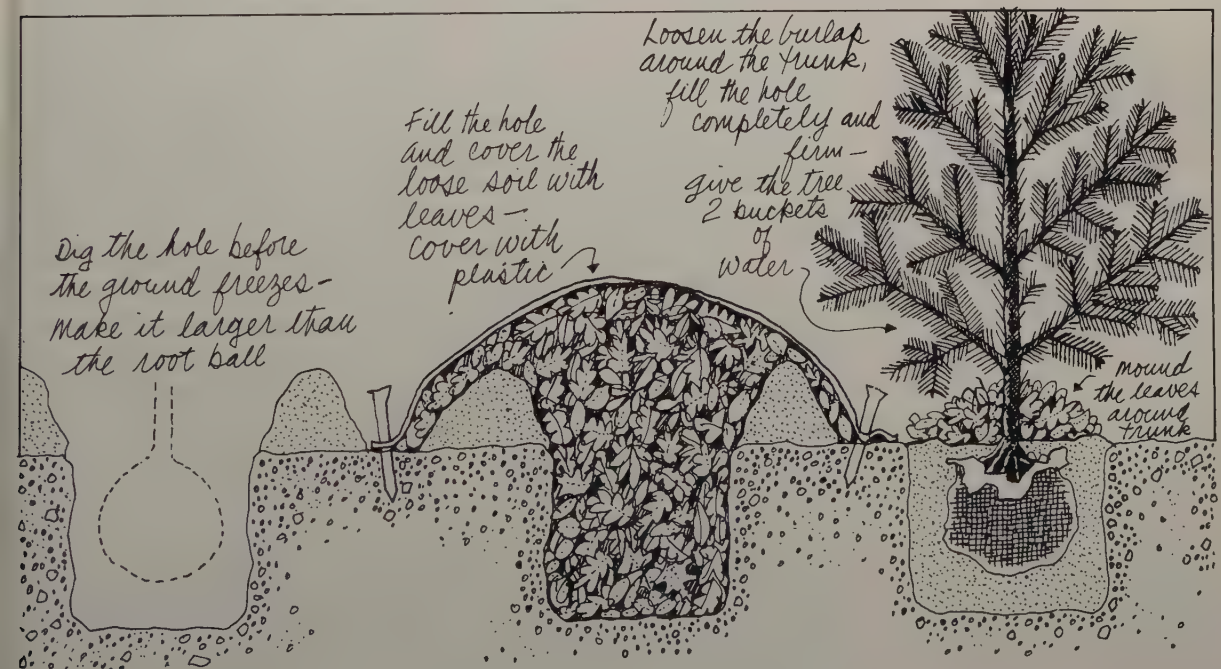 Dig the hole before
the ground freezes-
make it larger than
the root ball
Fill the hole
and cover the
loose soil with
leaves-
cover with
plastic
Loosen the burlap
around the trunk,
fill the hole
completely and
firm-
give the tree
2 buckets
of
water
mound
the leaves
around
trunk